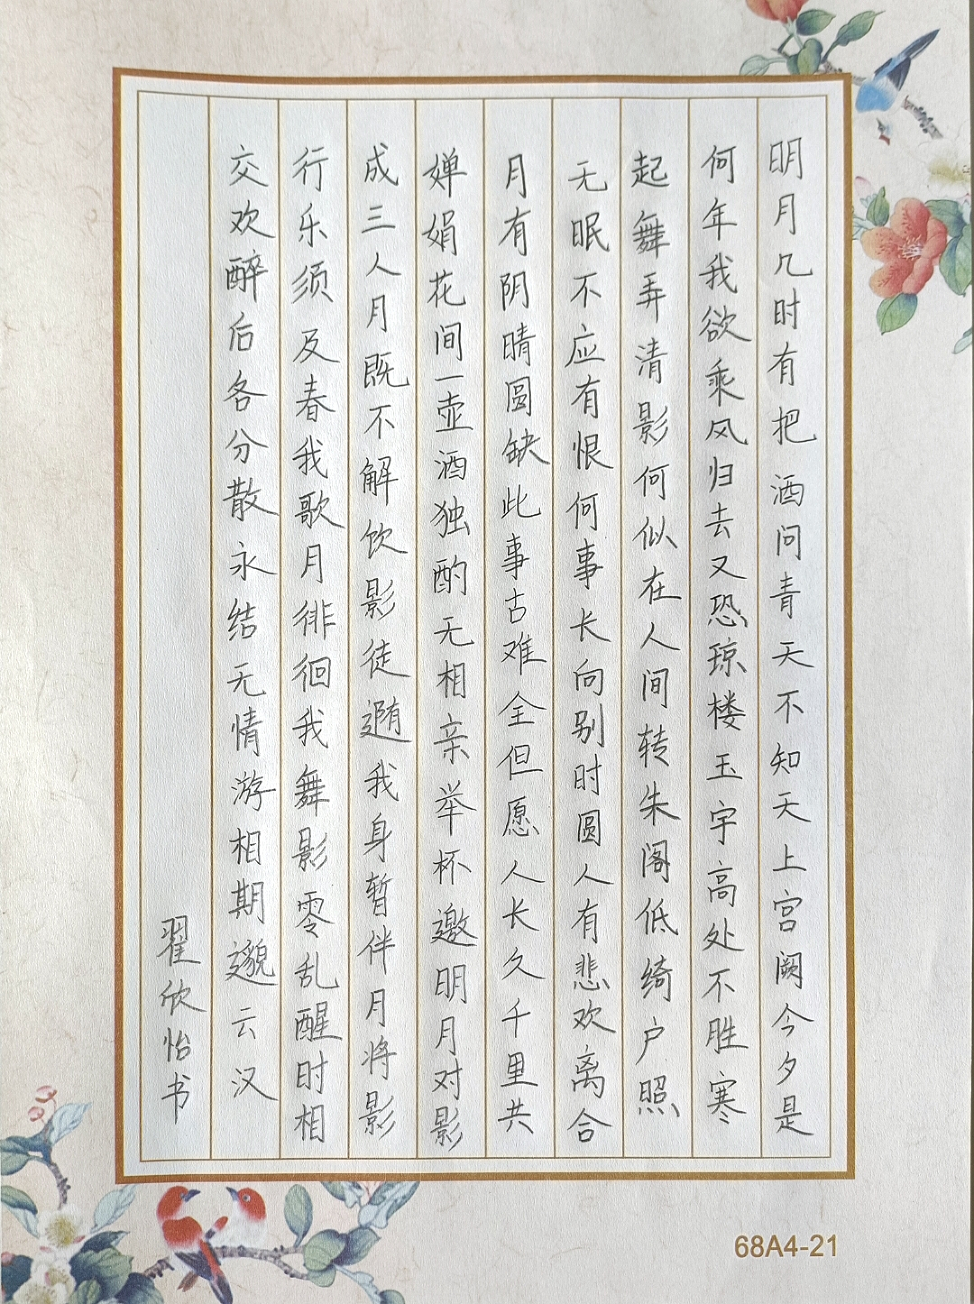 明月几时有把酒问青天不知天上宫阙今夕是
何年我欲乘风归去又恐琼楼玉宇高处不胜寒
起舞弄清影何似在人间转朱阁低绮户照
无眠不应有恨何事长向别时圆人有悲欢离合
月有阴晴圆缺此事古难全但愿人长久千里共
婵娟花间一壶酒独酌无相亲举杯邀明月对影
成三人月既不解饮影徒随我身暂伴月将影
行乐须及春我歌月徘徊我舞影零乱醒时相
交欢醉后各分散永结无情游相期邈云汉
翟欣怡书
68A4-21